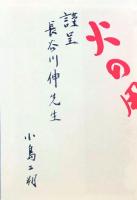 火の
謹呈
長谷川伸先生
小島二朔